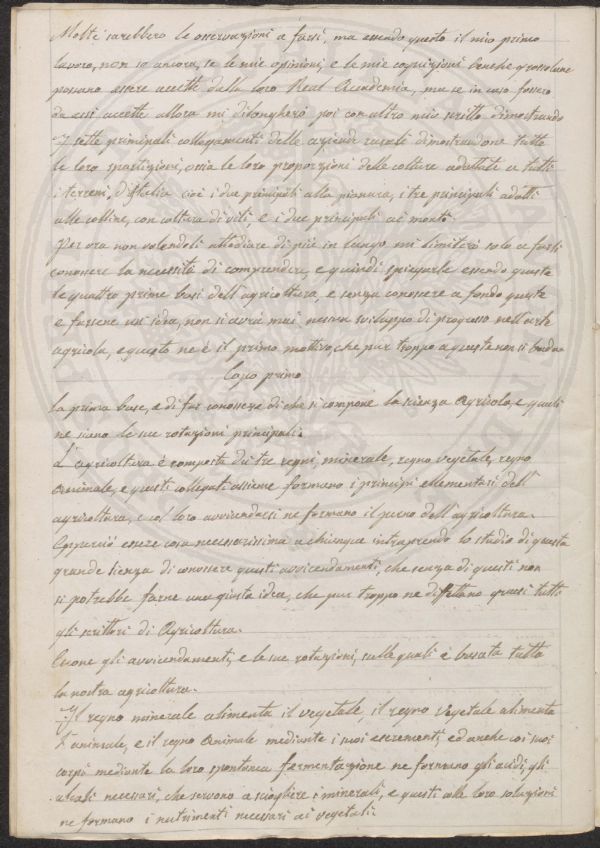 Molte sarebbero le osservazioni a farsi, ma essendo questo il mio primo
lavoro, non so ancora, se le mie opinioni, e le mie cognizioni benche grossolane
possano essere accette dalla loro Real Accademia, ma se in caso fossero
da essi accette allora mi dilongherò poi con altro mio scritto dimostrando
I sette principali collegamenti delle aziende rurali dimostrandone tutte
le loro spartizioni, ossia le loro proporzioni delle colture adottate a tutti
i terreni, D'Italia cioè i due principali alla pianura, i tre principali adatti
alle colline, con coltura di viti, e i due principali ai monti.
Per ora non volendoli attediare di più in lungo mi limiterò solo a farli
conoscere la necessità di comprendere, e quindi spiegarle essendo queste
le quattro prime basi dell'agricoltura, e senza conoscere a fondo queste
e farsene un'idea, non si avrà mai nessun sviluppo di progresso nell'arte
agricola, e questo ne è il primo mottivo, che pur troppo a queste non si bada
Capo primo
La prima base, è di far conoscere di che si compone la scienza Agricola, e quali
ne siano le sue rotazioni principali.
L'agricoltura è composta di tre regni, minerale, regno vegetale, regno
Animale, e questi collegati assieme formano i principi ellementari dell'
agricoltura, e col loro avvicendarsi ne formano il perno dell'agricoltura.
Epperciò essere cosa necessarissima a chiunque intraprende lo studio di questa
grande sienza di conoscere questi avvicendamenti, che senza di questi non
si potrebbe farne una giusta idea, che pur troppo ne difettano quasi tutti
gli scrittori di Agricoltura.
Cuone gli avvicendamenti, e le sue rotazioni, sulle quali è basata tutta
la nostra agricoltura.
Il regno minerale alimenta il vegetale, il regno vegetale alimenta
l'animale, e il regno Animale mediante i suoi escrementi, ed anche coi suoi
corpi mediante la loro spontanea fermentazione ne formano gli acidi, gli
alcali necessari, che servono a sciogliere i minerali, e questi colle loro soluzioni
ne formano i nutrimenti necessari ai vegetali.